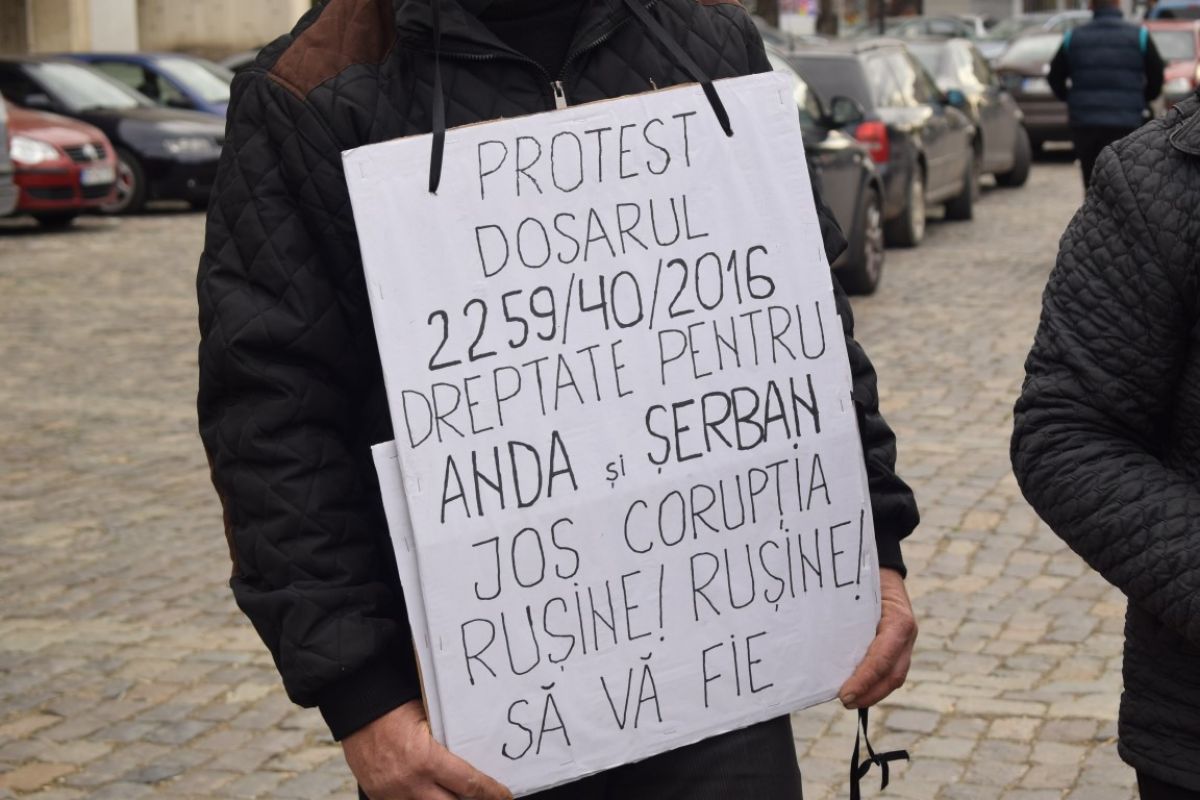 PROTEST
DOSARUL
2259/40/2016
DREPTATE PENTRU
ANDA și ȘERBAN
JOS CORUPȚIA
RUȘINE! RUȘINE!
SĂ VĂ FIE